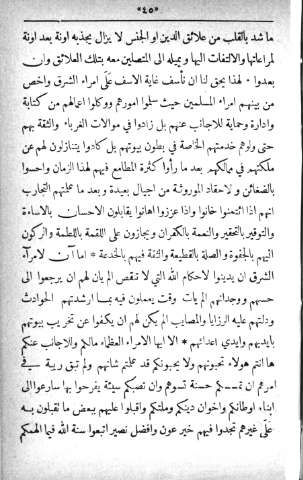 «٤٥»
ما شد بالقلب من علائق الدين او الجنس لا يزال يجذبه اونة بعد اونة
لمراعاتها والالتفات اليها ويميله الى المتصلين معه بتلك العلائق وان
بعدوا * لهذا يحق لنا ان نأسف غاية الاسف على امراء الشرق واخص
من بينهم امراء المسلمين حيث سلموا امورهم ووكلوا اعمالهم من كتابة
وادارة وحماية للاجانب عنهم بل زادوا في موالات الغرباء والثقة بهم
حتى ولوهم خدمتهم الخاصة في بطون بيوتهم بل كادوا يتنازلون لهم عن
ملكتهم في ممالكهم بعد ما رأوا كثرة المطامع فيهم لهذا الزمان واحسوا
بالضغائن والاحقاد الموروثة من اجيال بعيدة وبعد ما علمتهم التجارب
انهم اذا ائتمنوا خانوا واذا عززوا اهانوا يقابلون الاحسان بالاساءة
والتوقير بالتحقير والنعمة بالكفران ويجازون على اللقمة باللطمة والركون
اليهم بالجفوة والصلة بالقطيعة والثقة فيهم بالخدعة * اما آن لامراء
الشرق ان يدينوا لاحكام الله التي لا تنقض الم يان لهم ان يرجعوا الى
حسهم ووجدانهم الم يات وقت يعملون فيه بما ارشدتهم الحوادث
ودلتهم عليه الرزايا والمصايب الم يكن لهم ان يكفوا عن تخريب بيوتهم
بايديهم وايدي اعدائهم * الا ايها الامراء العظماء مالكم وللاجانب عنكم
ها انتم هولاء تحبونهم ولا يحبونكم قد علمتم شانهم ولم تبق ريبة في
امرهم ان تمسسكم حسنة تسؤهم وان تصبكم سيئة يفرحوا بها سارعوا الى
ابناء اوطانكم واخوان دينكم وملتكم واقبلوا عليهم ببعض ما تقبلون به
على غيرهم تجدوا فيهم خير عون وافضل نصير اتبعوا سنة الله فيما الهمكم